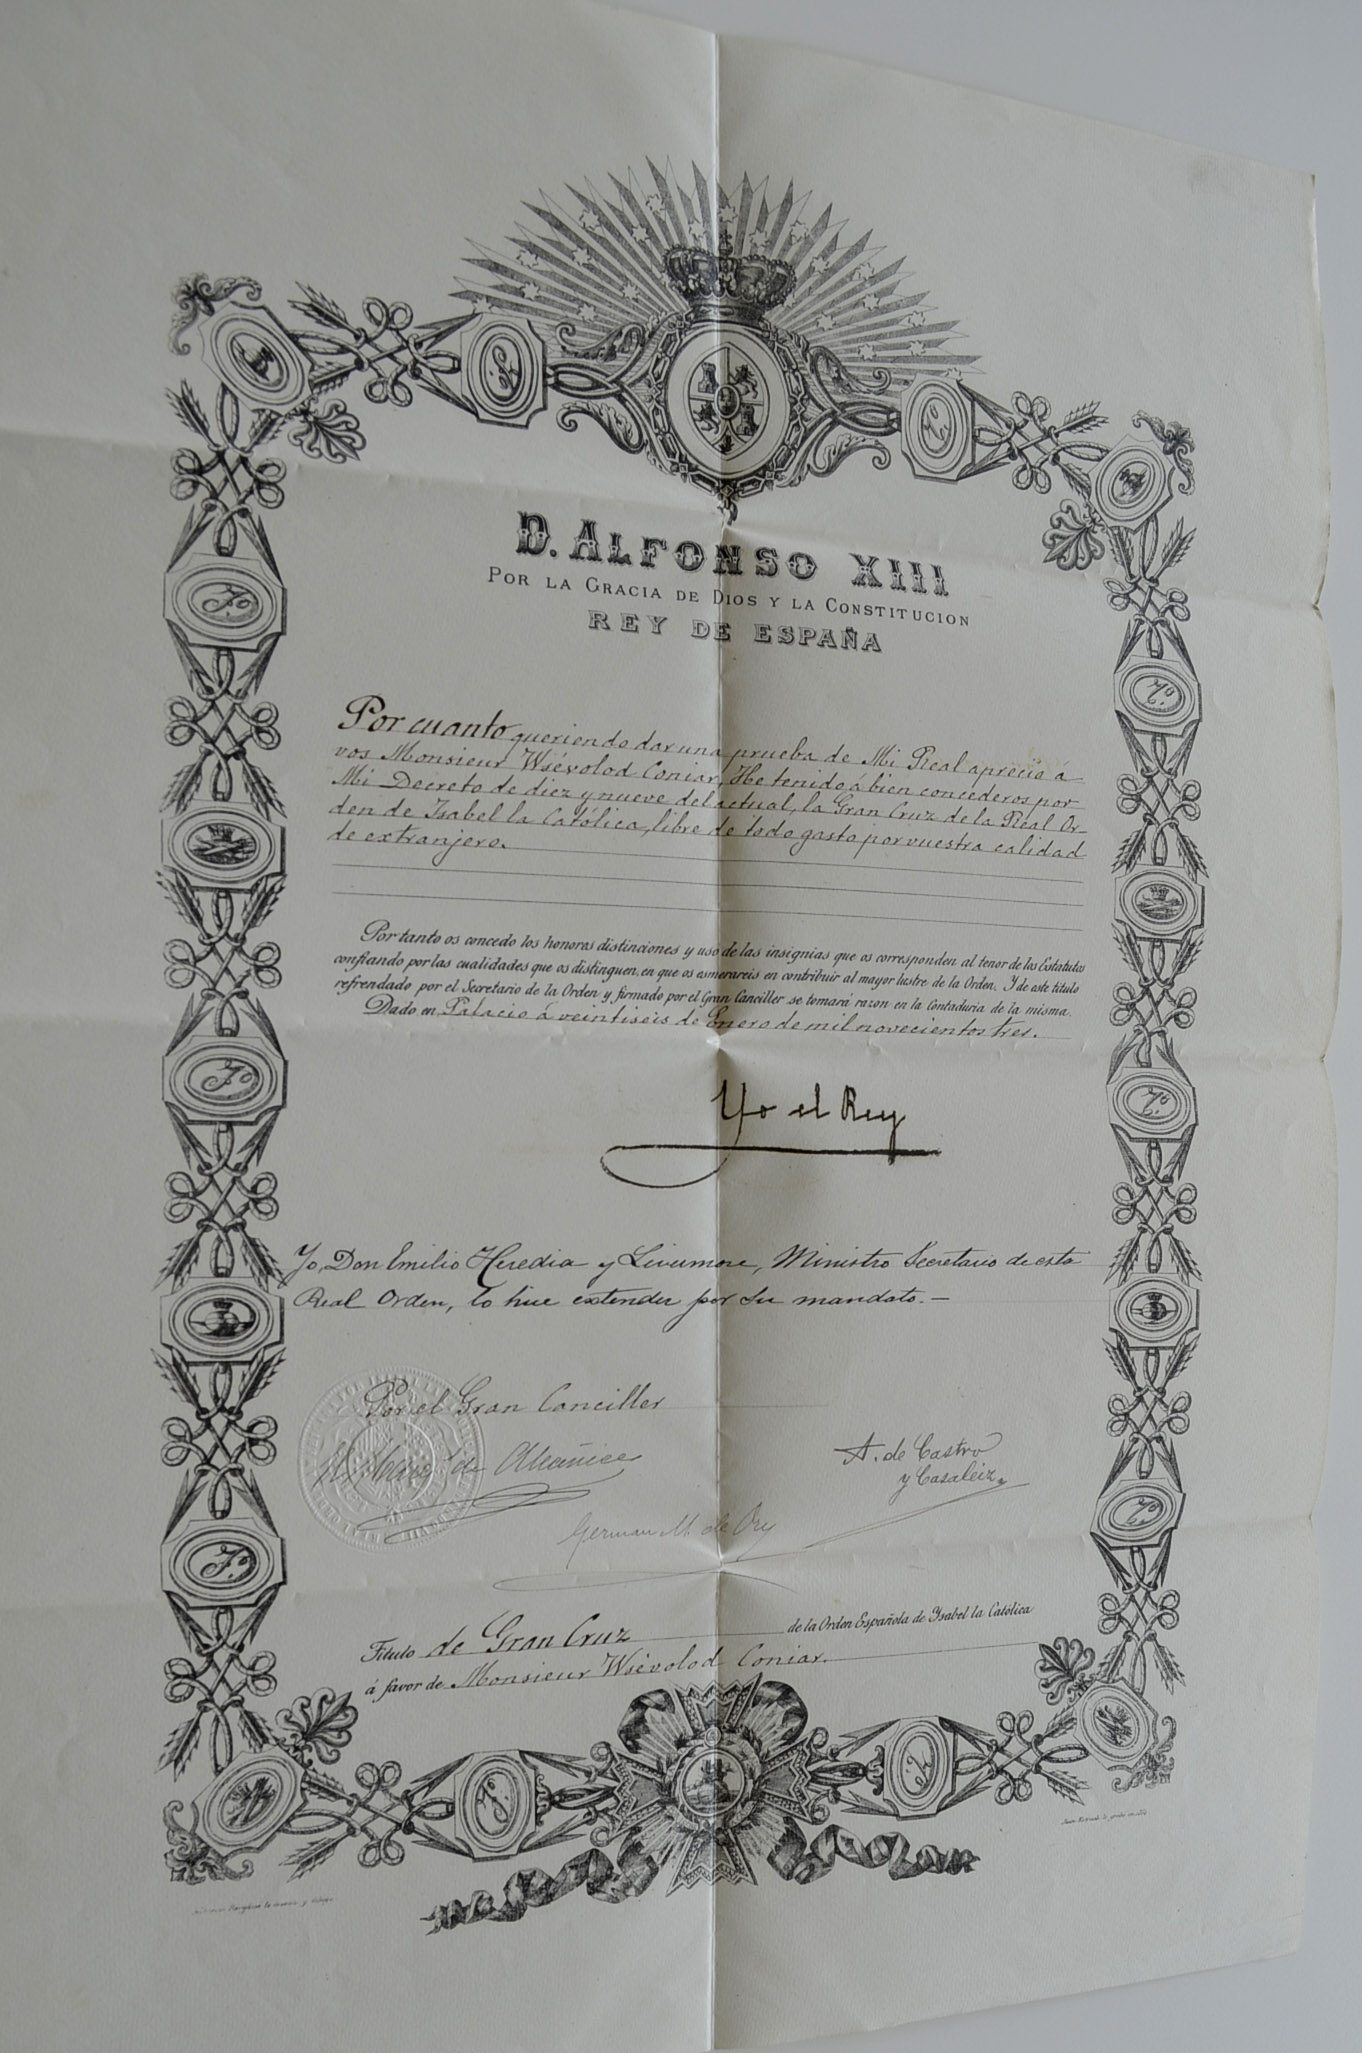 D. ALFONSO XIII
POR LA GRACIA DE DIOS Y LA CONSTITUCION
REY DE ESPAÑA
Por cuanto queriendo dar una prueba de Mi Real aprecio á
vos Monsieur Wsévolod Coniar, He tenido á bien concederos por
Mi Decreto de diez y nueve del actual, la Gran Cruz de la Real Or-
den de Isabel la Católica, libre de todo gasto por vuestra calidad
de extranjero.
Por tanto os concedo los honores distinciones y uso de las insignias que os corresponden al tenor de los Estatutos
confiando por las cualidades que os distinguen, en que os esmerareis en contribuir al mayor lustre de la Orden. Y de este título
refrendado por el Secretario de la Orden y firmado por el Gran Canciller se tomará razon en la Contaduria de la misma.
Dado en Palacio á veintiseis de Enero de mil novecientos tres.
Yo el Rey
Yo, Don Emilio Heredia y Livermore, Ministro Secretario de esta
Real Orden, lo hice extender por su mandato.—
Por el Gran Canciller
de Alcañices
A. de Castro
y Casaleiz
German M. de Ory
Título de Gran Cruz de la Orden Española de Ysabel la Católica
á favor de Monsieur Wsévolod Coniar.